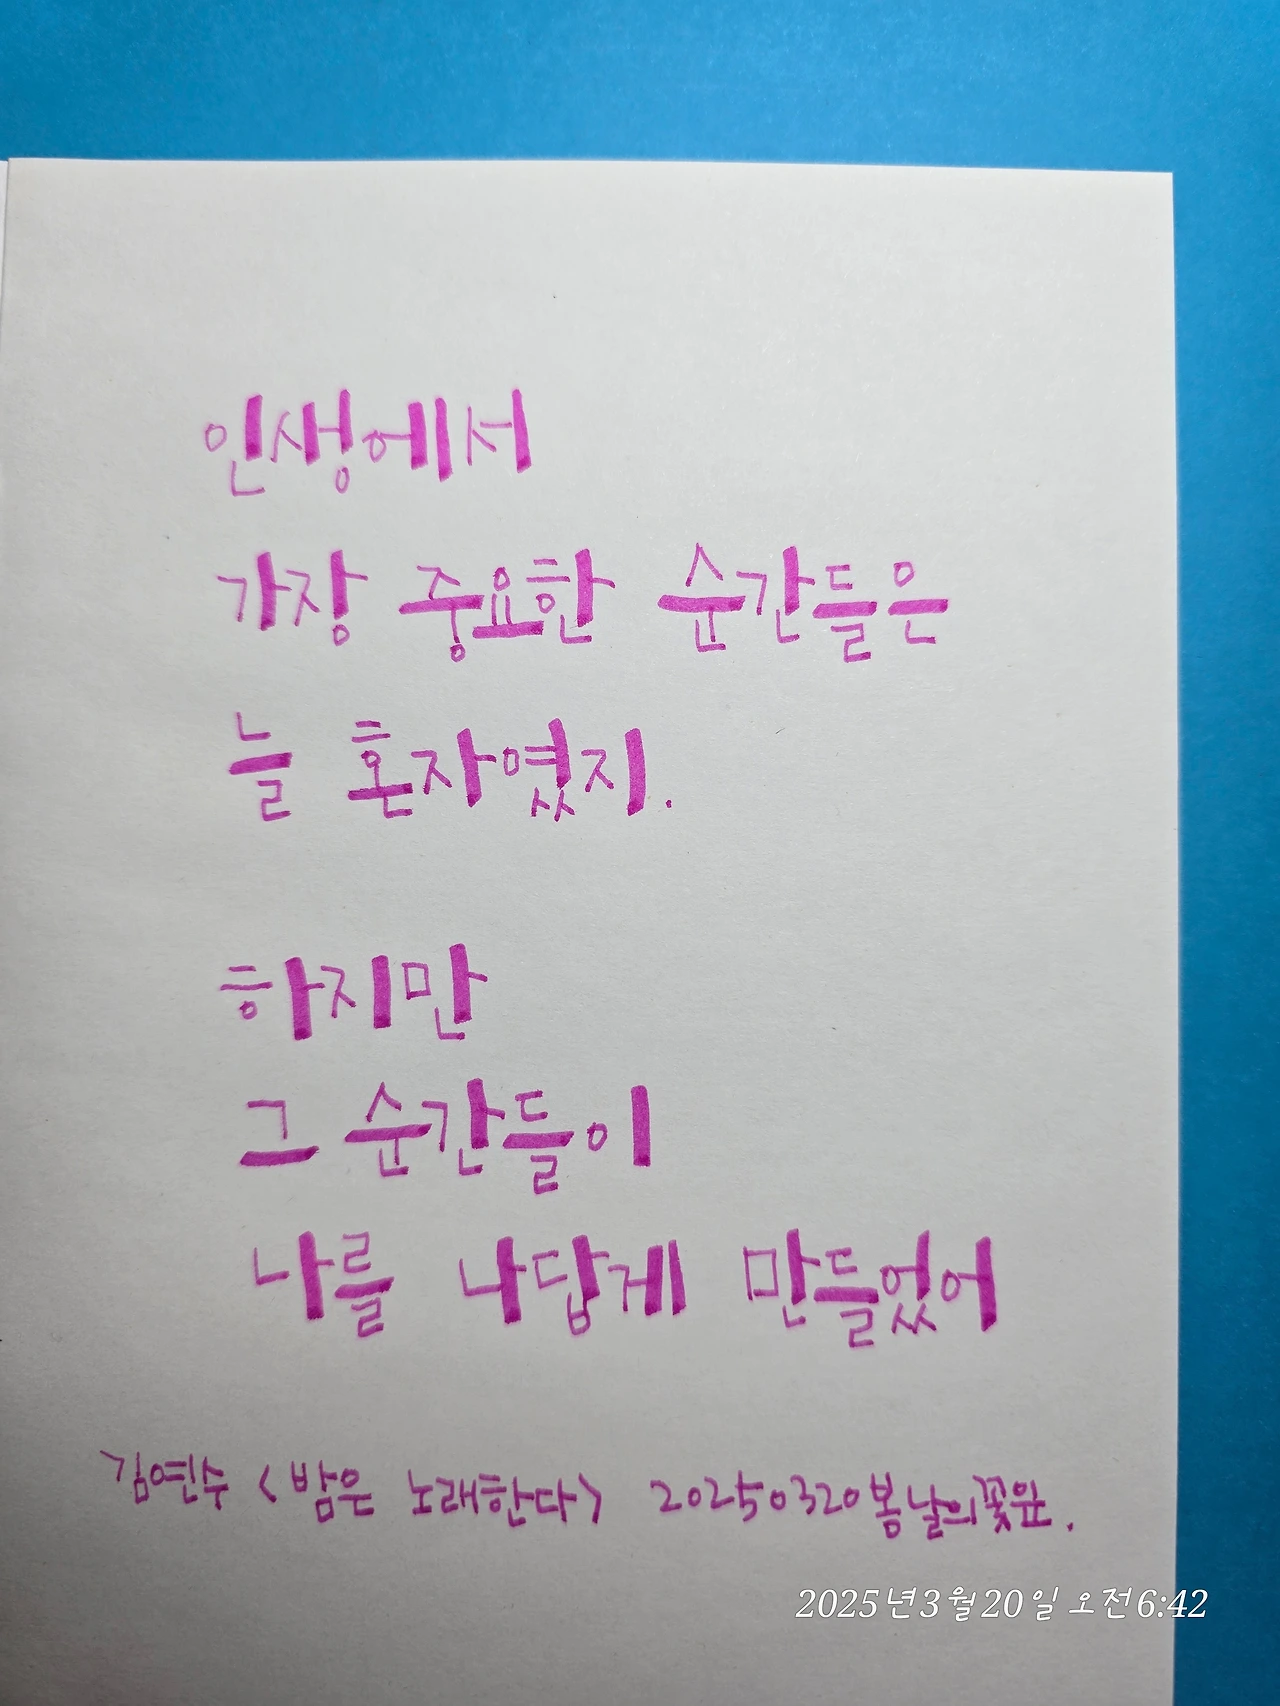 인생에서
가장 중요한 순간들은
늘 혼자였지.
하지만
그 순간들이
나를 나답게 만들었어
김연수 <밤은 노래한다> 20250320봄날의꽃잎.
2025년3월20일 오전6:42